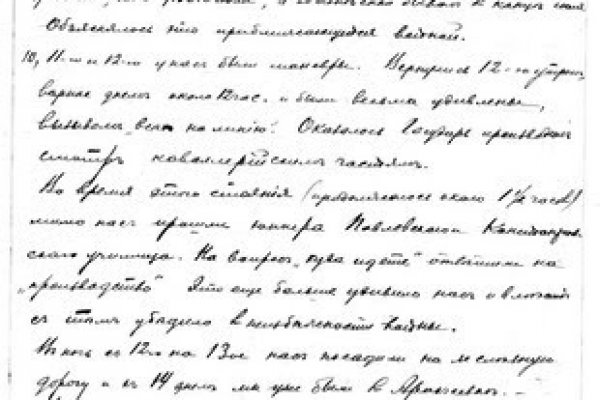 Объяснялось это приближающейся войной.
10, 11-го и 12-го у нас были маневры. Вернулись 12-го утром,
вернее днем около 12 час. и были весьма удивлены,
вызовом "всех на линию". Оказалось Государь производил
смотр кавалерийским частям.
Во время этого стояния (продолжалось около 1½ часов)
мимо нас прошли юнкера Павловского
ского училища. На вопрос "куда идете" ответили на
"производство" Это еще больше удивило нас и
с тем убедило в неизбежности войны.
В ночь с 12го на 13ое нас посадили на железную
дорогу и 14 днем мы уже были в